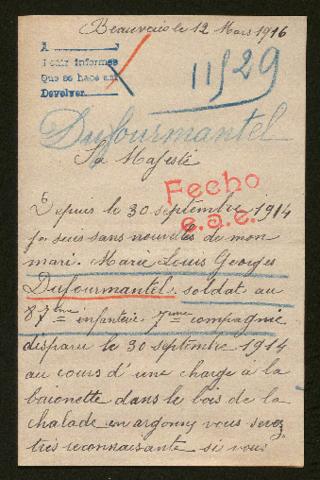 Beauvais le 12 Mars 1916
A
Pedir informes
Que se hace así
Devolver
11529
Dufourmantel
Sa Majesté
Fecho
e.a.e.
Depuis le 30 septembre 1914
je suis sans nouvelles de mon
mari. Marie Louis Georges
Dufourmantel. soldat au
87ème infanterie 7ème compagnie
disparu le 30 septembre 1914
au cours d'une charge à la
baionette dans le bois de la
chalade en argonne vous serez
très reconnaissante si vous